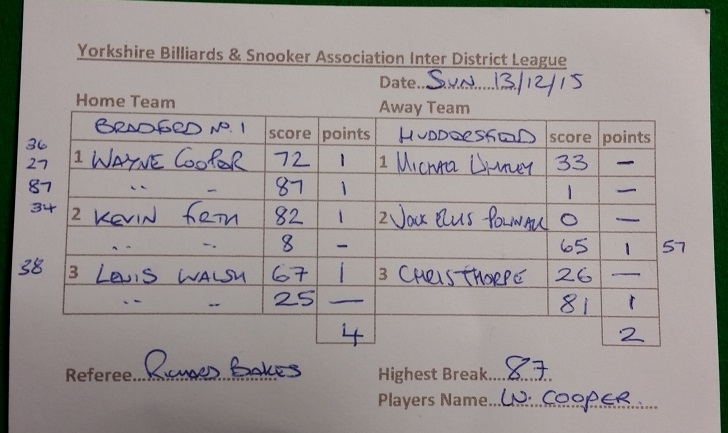 Yorkshire Billiards & Snooker Association Inter District League
Date..SUN....13/12/15
Home Team Away Team
BRADFORD No. 1 score points HUDDERSFIELD score points
36
27 1 WAYNE COOPER 72 1 1 MICHAEL 33 –
87 ·· – 87 1 1 –
34 2 KEVIN FIRTH 82 1 2 JACK ELLIS 0 –
·· – 8 – 65 1 57
38 3 LEWIS WALSH 67 1 3 CHRIS THORPE 26 –
·· – 25 – 81 1
4 2
Referee...RICHARD BAKES
Highest Break....87..
Players Name...W. COOPER....